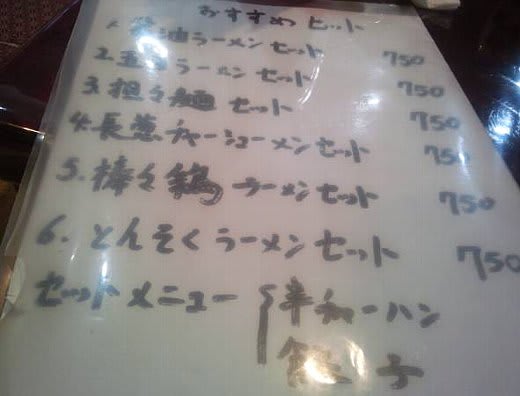 おすすめ セット
1. 醤油ラーメンセット 750
2. 玉 ラーメン セット 750
3. 担々麺 セット 750
4. 長葱チャーシューメンセット 750
5. 棒々鶏 ラーメンセット 750
6. とんそくラーメンセット 750
セットメニュー 半チャーハン
餃子